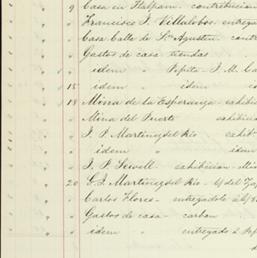 " 9 Casa en Tlalpam - contribucion
" " Francisco J. Villalobos - entreg
" " Casa Calle de Sn Agustin contr
" " Gastos de casa tiendas
" " idem " Pepita - J. M. Ca
" 15 idem idem
" 18 Mina de la Esperanza - exhibic
" " Mina del Puerto exhibic
" " J. P. Martinez del Rio exhib
" " idem idem
" " J. P. Sewell - exhibicion Mi
" 20 G. J. Martinez del Rio
" " Carlos Flores - entregadole
" " Gastos de casa - carbon
" " idem " entregado á Pep